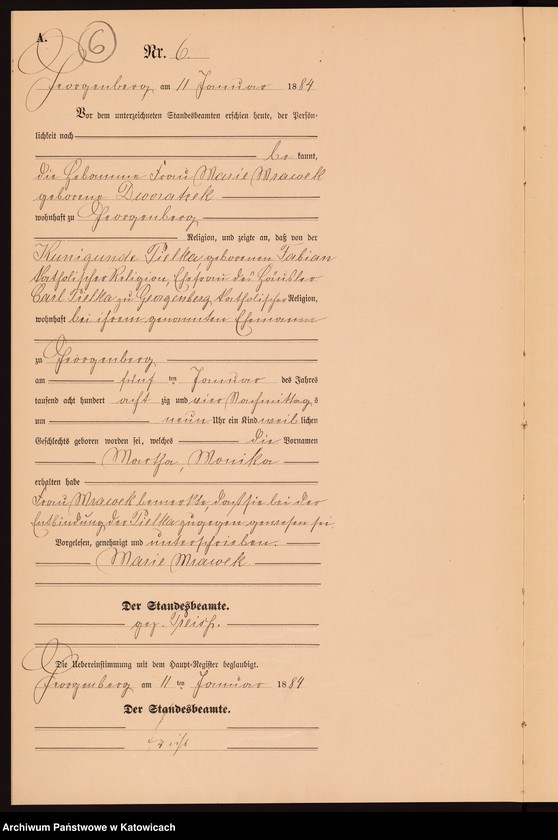 A.
6
Nr. 6.
Georgenberg am 11 Januar 1884
Vor dem unterzeichneten Standesbeamten erschien heute, der Persön-
lichkeit nach
be kannt,
die Hebamme Frau Marie Mrawek
geborene
wohnhaft zu Georgenberg
Religion, und zeigte an, daß von der
Kunigunde Pielka, geborenen Fabian
katholischer Religion, Ehefrau des Häusler
Carl Pielka zu Georgenberg katholischer Religion,
wohnhaft bei ihrem genannten Ehemanne
zu Georgenberg
am fünf ten Januar des Jahres
tausend acht hundert acht zig und vier Nachmittag s
um neun Uhr ein Kind weib lichen
Geschlechts geboren worden sei, welches die Vornamen
Martha, Monika
erhalten habe
Frau Mrawek bemerkte, daß sie bei der
Entbindung der Pielka zugegen gewesen sei.
Vorgelesen, genehmigt und unterschrieben.
Marie Mrawek
Der Standesbeamte.
gez.
Die Uebereinstimmung mit dem Haupt-Register beglaubigt.
Georgenberg am 11 ten Januar 1884
Der Standesbeamte.
Archiwum Państwowe w Katowicach